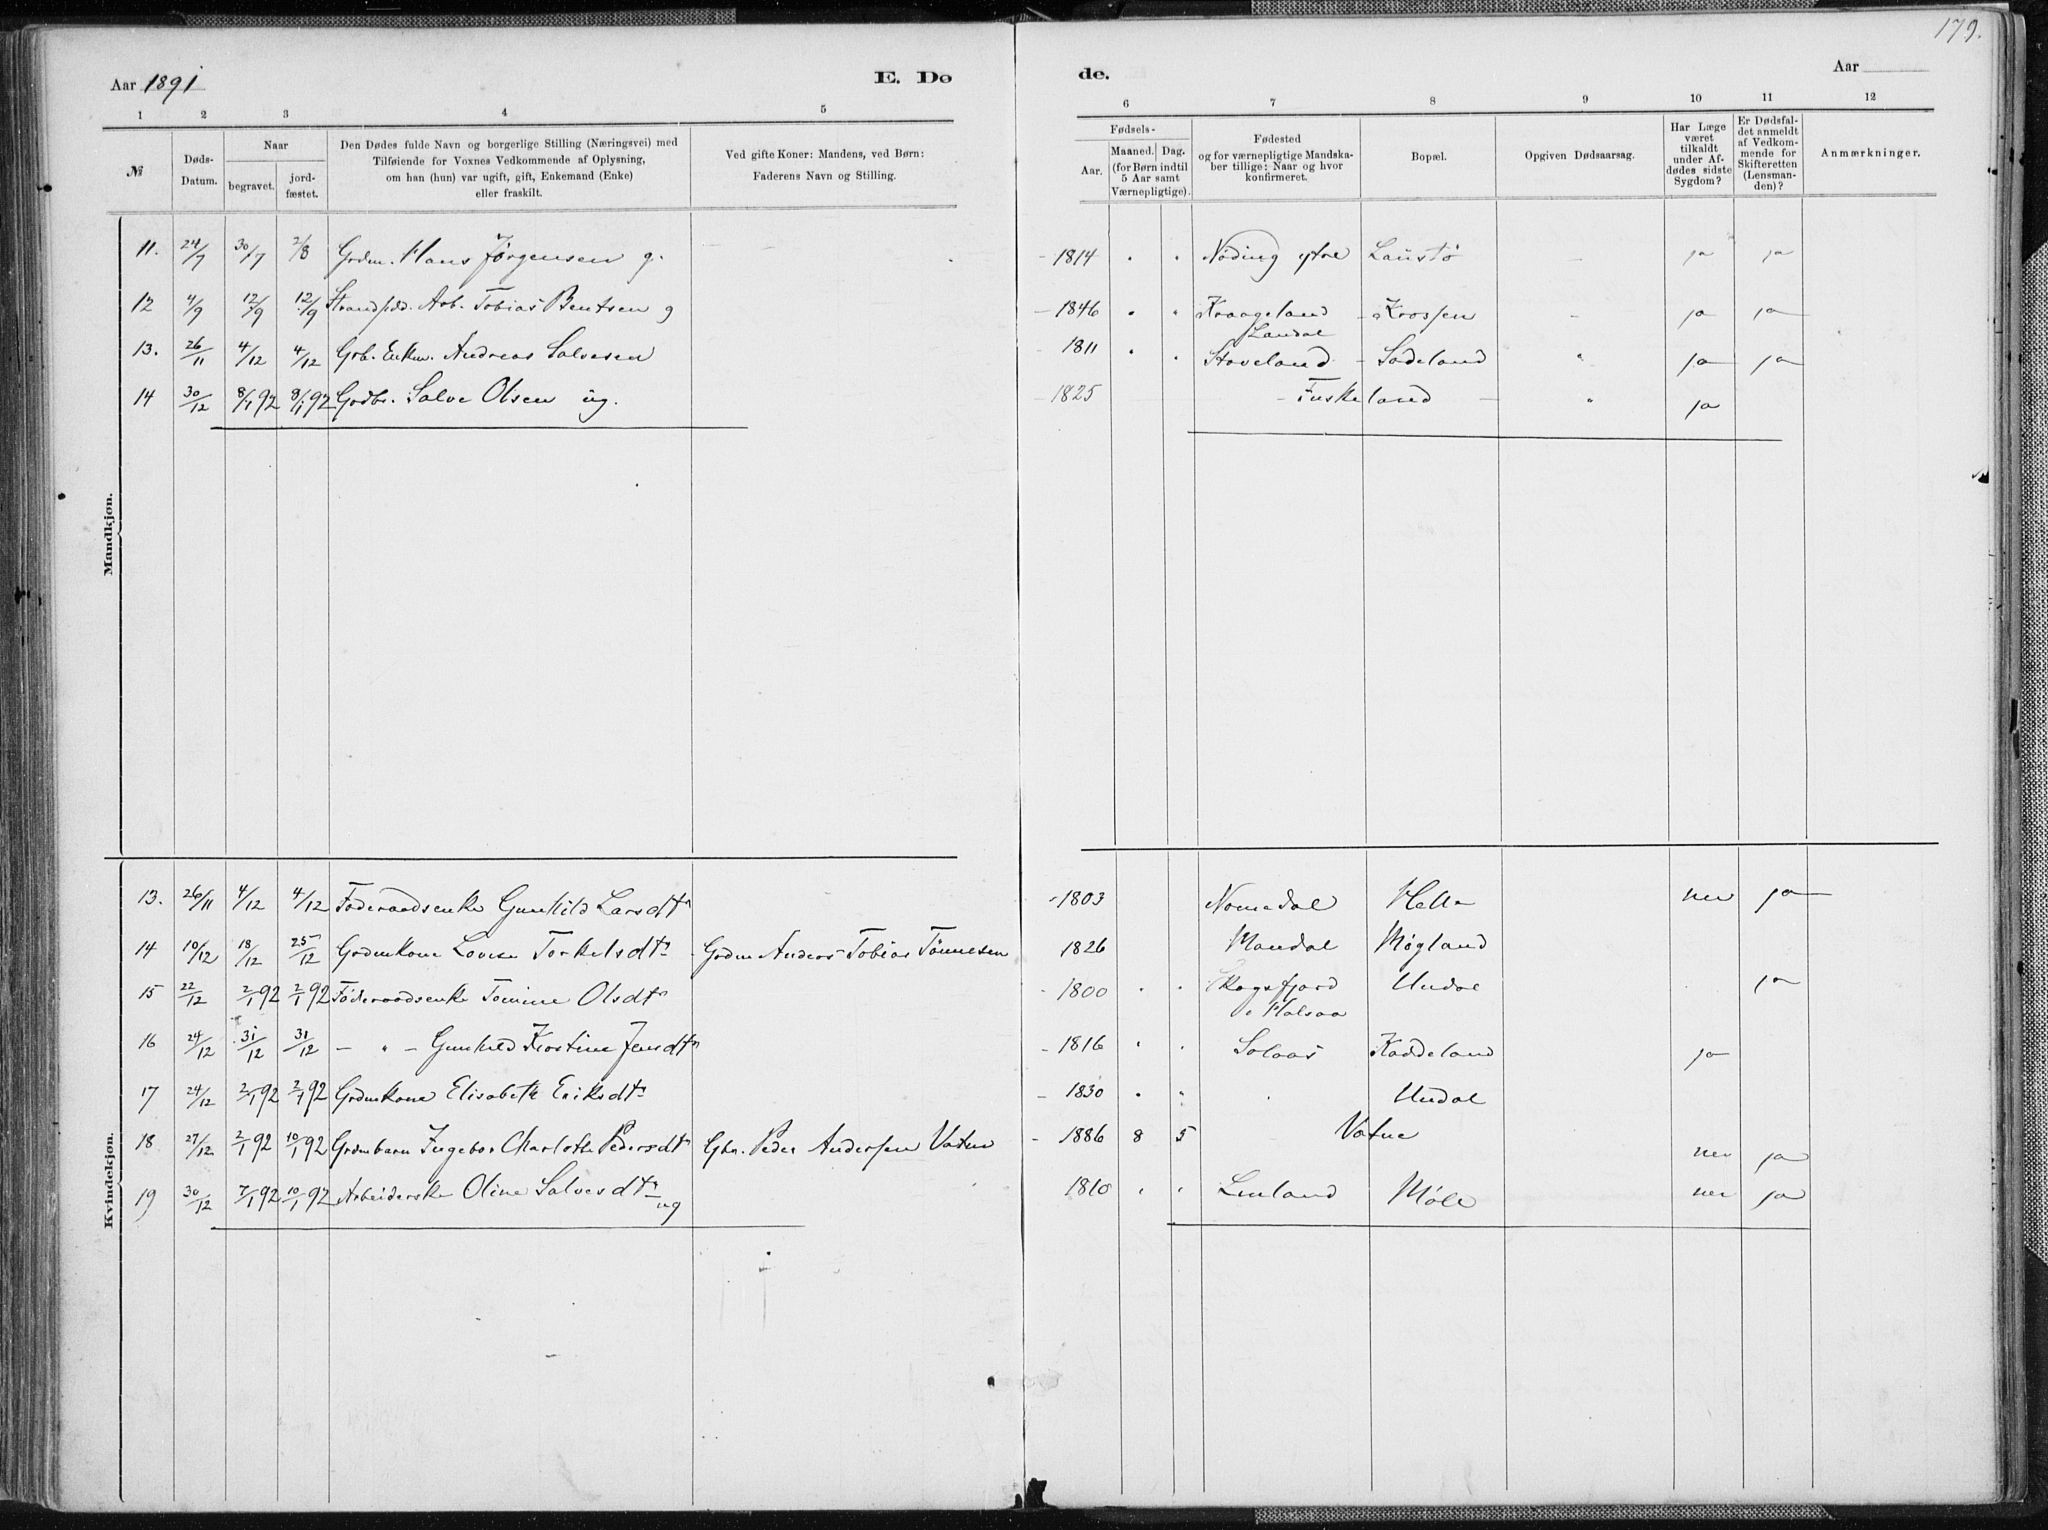 179.
Aar 1891
E. Dø
de.
Aar
1 2 3 4 5
6 7 8 9 10 11 12
№
Døds-Datum.
Naar
begravet.
jord-fæstet.
Den Dødes fulde Navn og borgerlige Stilling (Næringsvei) med
Tilføiende for Voxnes Vedkommende af Oplysning,
om han (hun) var ugift, gift, Enkemand (Enke)
eller fraskilt.
Ved gifte Koner: Mandens, ved Børn:
Faderens Navn og Stilling.
Fødsels-
Aar.
Maaned. Dag.
(for Børn indtil
5 Aar samt
Værnepligtige).
Fødested
og for værnepligtige Mandska-
ber tillige: Naar og hvor
konfirmeret.
Bopæl.
Opgiven Dødsaarsag.
Har Læge
været
tilkaldt
under Af-
dødes sidste
Sygdom?
Er Dødsfal-
det anmeldt
af Vedkom-
mende for
Skifteretten
(Lensman-
den)?
Anmærkninger.
Mandkjøn.
11. 24/7 30/7 2/8 Grdm. Hans Jørgensen g. - 1814 " " Nøding ytre - ja ja
12 4/9 12/9 12/9 Arb. Tobias Bentsen g - 1846 " " Kraageland - Krossen - ja ja
Landal
13. 26/11 4/12 4/12 Enkm. Andreas Salvesen - 1811 " " Stoveland - Sødeland " ja ja
14 30/12 8/1 92 8/1 92 Grdbr. Salve Olsen ug. - 1825 - Fuskeland - " ja
Kvindekjøn.
13. 26/11 4/12 4/12 Føderaadsenke Gunhild Larsdtr - 1803 Nomedal Helle nei ja
14 10/12 18/12 25/12 Grdmkone Lovise Torkelsdtr Grdm Anders Tobias Tønnesen 1826 Mandal Møgland
15 22/12 2/1 92 2/1 92 Føderaadsenke Tomine Olsdtr - 1800 " " Skogsfjord Undal ja
i Halsaa
16 24/12 31/12 31/12 - " - Gunhild Kirstine Jensdtr - 1816 " " Solaas Kaddeland ja
17 24/12 2/1 92 2/1 92 Grdmkone Elisabeth Eriksdtr - 1830 " " " Undal
18 27/12 2/1 92 10/1 92 Grdmbarn Ingebor Charlothe Pedersdtr Gbr. Peder Andersen Vatne - 1886 8 5 Vatne nei ja
19 30/12 7/1 92 10/1 92 Arbeiderske Oline Salvesdtr ug 1810 " " Møle nei ja